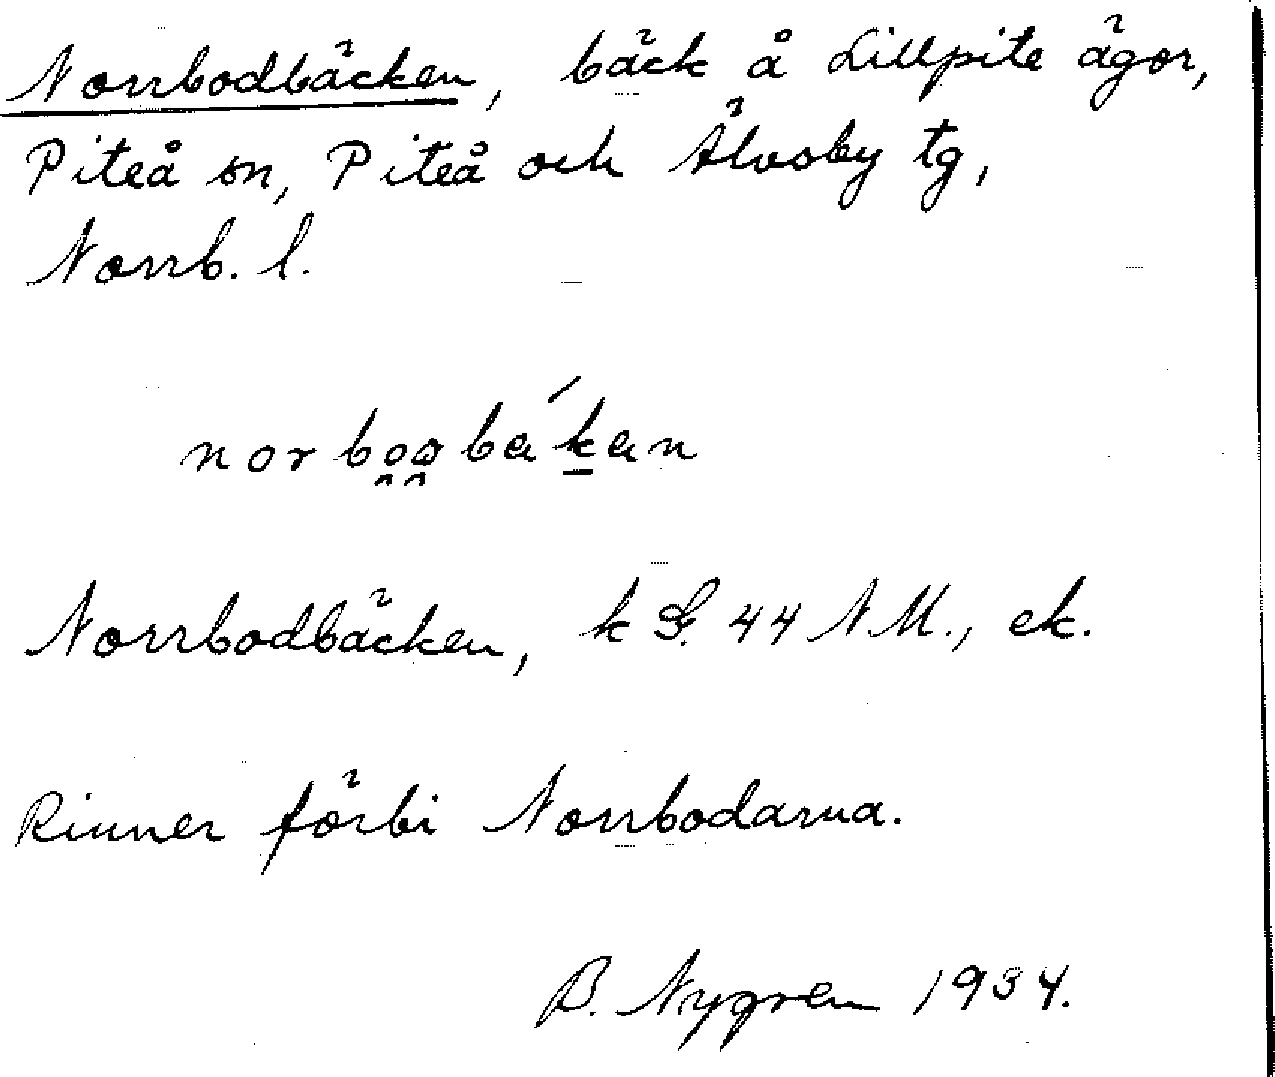 Norrbodbäcken, bäck å Lillpite ägor,
Piteå sn, Piteå och Älvsby tg,
Norrb. l.
Norrbodbäcken, k S. 44 NM., ek.
Rinner förbi Norrbodarna.
B. Nygren 1934.